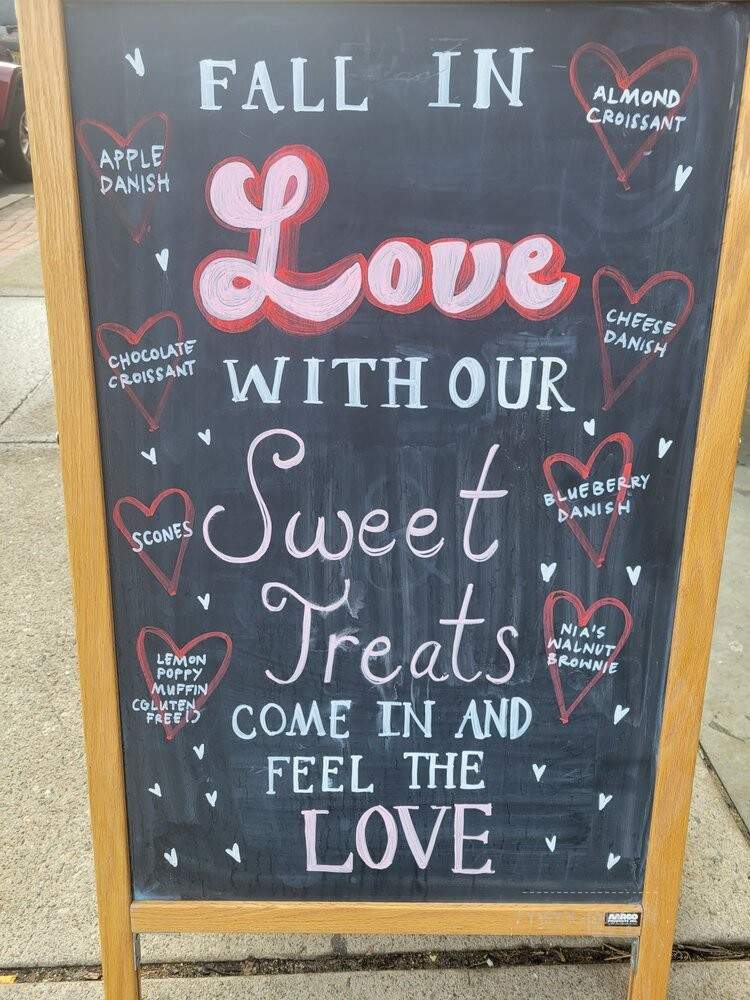 FALL IN
Love
WITH OUR
Sweet
Treats
COME IN AND
FEEL THE
LOVE
APPLE
DANISH
CHOCOLATE
CROISSANT
SCONES
LEMON
POPPY
MUFFIN
(GLUTEN
FREE!)
ALMOND
CROISSANT
CHEESE
DANISH
BLUEBERRY
DANISH
NIA'S
WALNUT
BROWNIE
AARCO